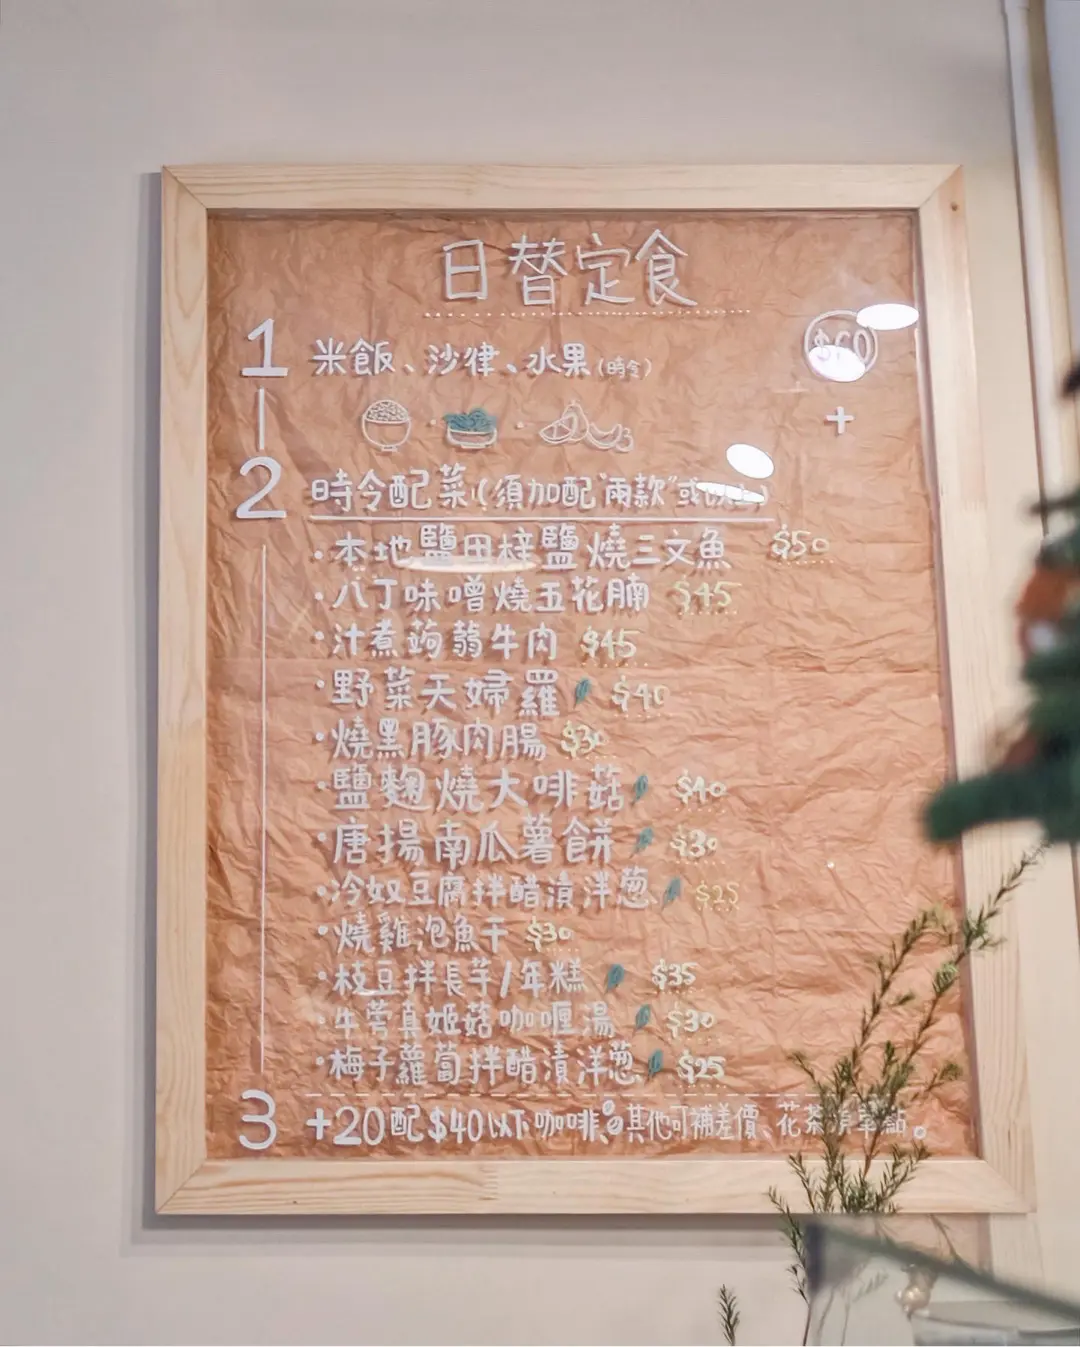 日替定食
1 米飯、沙律、水果(時令)
+
2 時令配菜(須加配"兩款"或以上)
·本地鹽田梓鹽燒三文魚 $50
·八丁味噌燒五花腩 $45
·汁煮蒟蒻牛肉 $45
·野菜天婦羅 $40
·燒黑豚肉腸 $30
·鹽麴燒大啡菇 $40
·唐揚南瓜薯餅 $30
·冷奴豆腐拌醋漬洋葱 $25
·燒雞泡魚干 $30
·枝豆拌長芋/年糕 $35
·牛蒡真姬菇咖喱湯 $30
·梅子蘿蔔拌醋漬洋葱 $25
3 +20配$40以下咖啡、其他可補差價、花茶